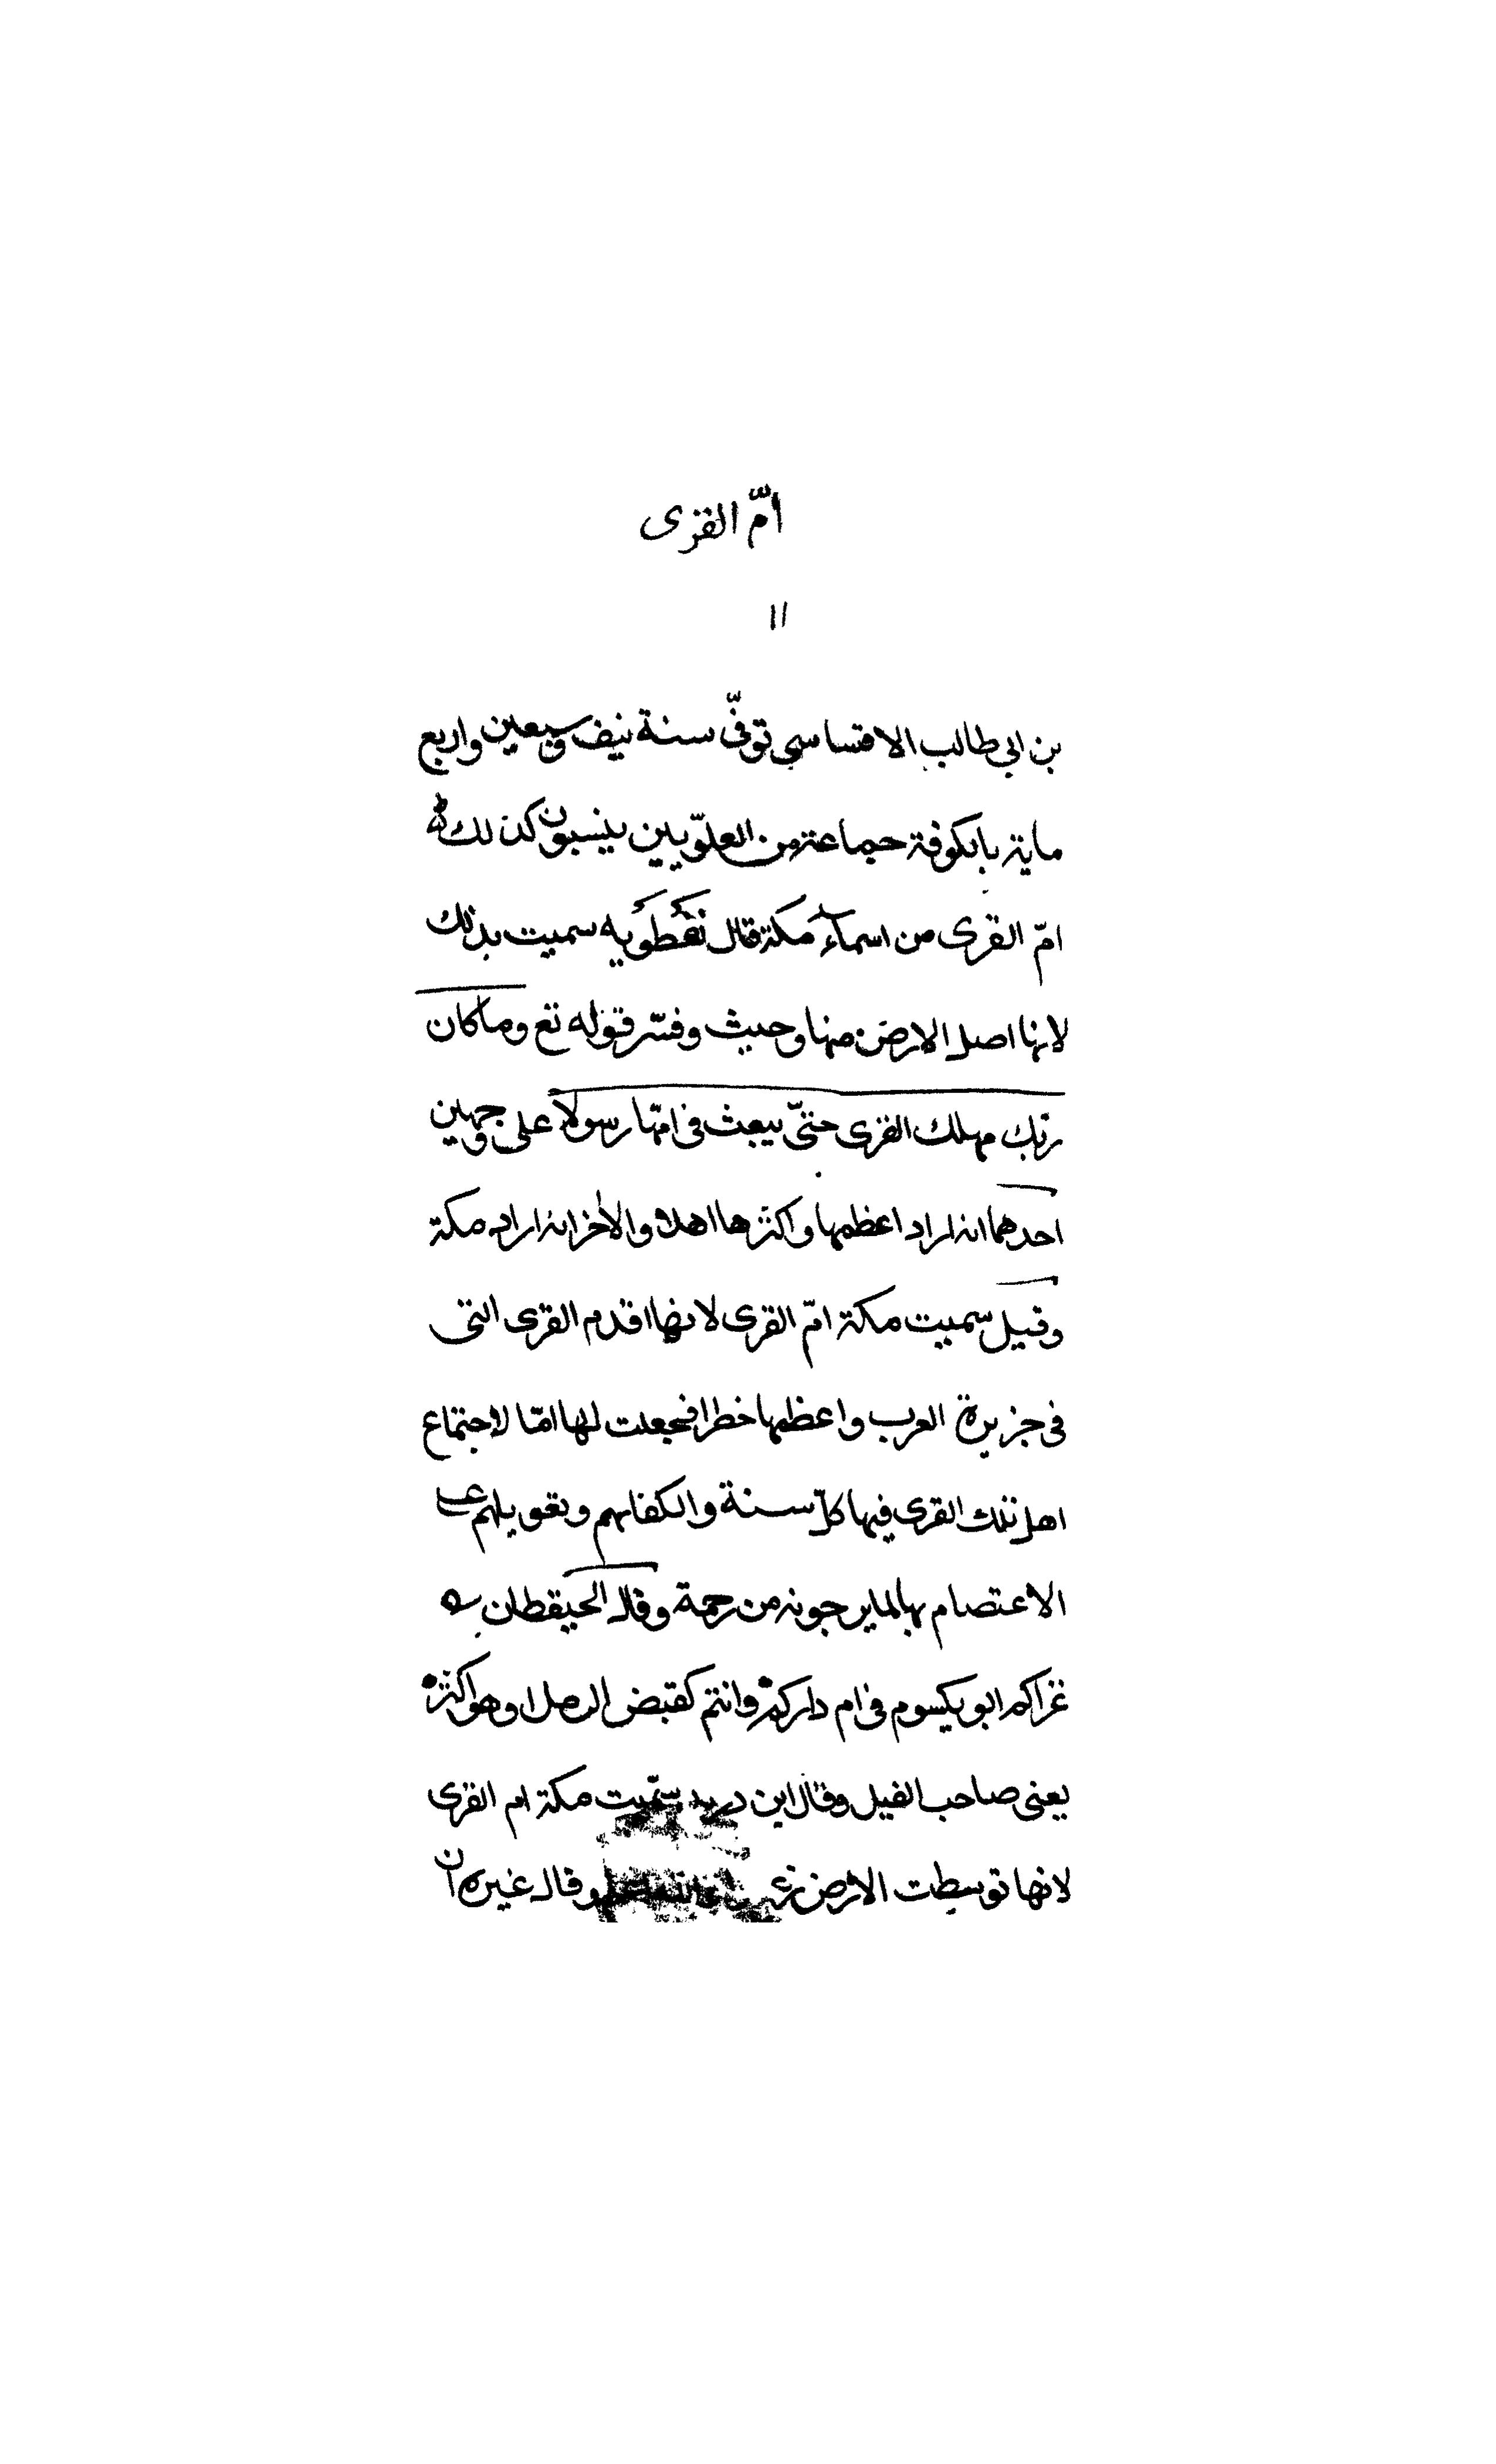 امّ القرى
١١
بن ابي طالب الاقتساسي توفّى سنة نيف وسبعين واربع
ماية بالكوفة جماعة من العلوّيين ينسبون كذلك
امّ القرى من اسمآء مكة قال نفطويه سميت بذلك
لانها اصل الارض منها وحيث وفسّر قوله تع وماكان
ربّك مهلك القرى حتىّ يبعث فى امّها رسولا على وجهين
احدهما انه اراد اعظمها واكثرها اهلا والاخر انه اراد مكة
وقيل سميت مكة امّ القرى لانها اقدم القرى التى
فى جزيرة العرب واعظمها خطرا فجعلت لها امّا لاجتماع
اهل تلك القرى فيها كلّ سنة والكفائهم وتعويلهم على
الاعتصام بها لما يرجونه من رحمة وقال الحيقطان
غزاكم ابو يكسوم فى ام داركم وانتم كقبض الرمل او هو اكثر
يعنى صاحب الفيل وقال ابن دريد سمّيت مكة ام القرى
لانها توسطت الارض زعموا والله اعلم وقال غيره ان